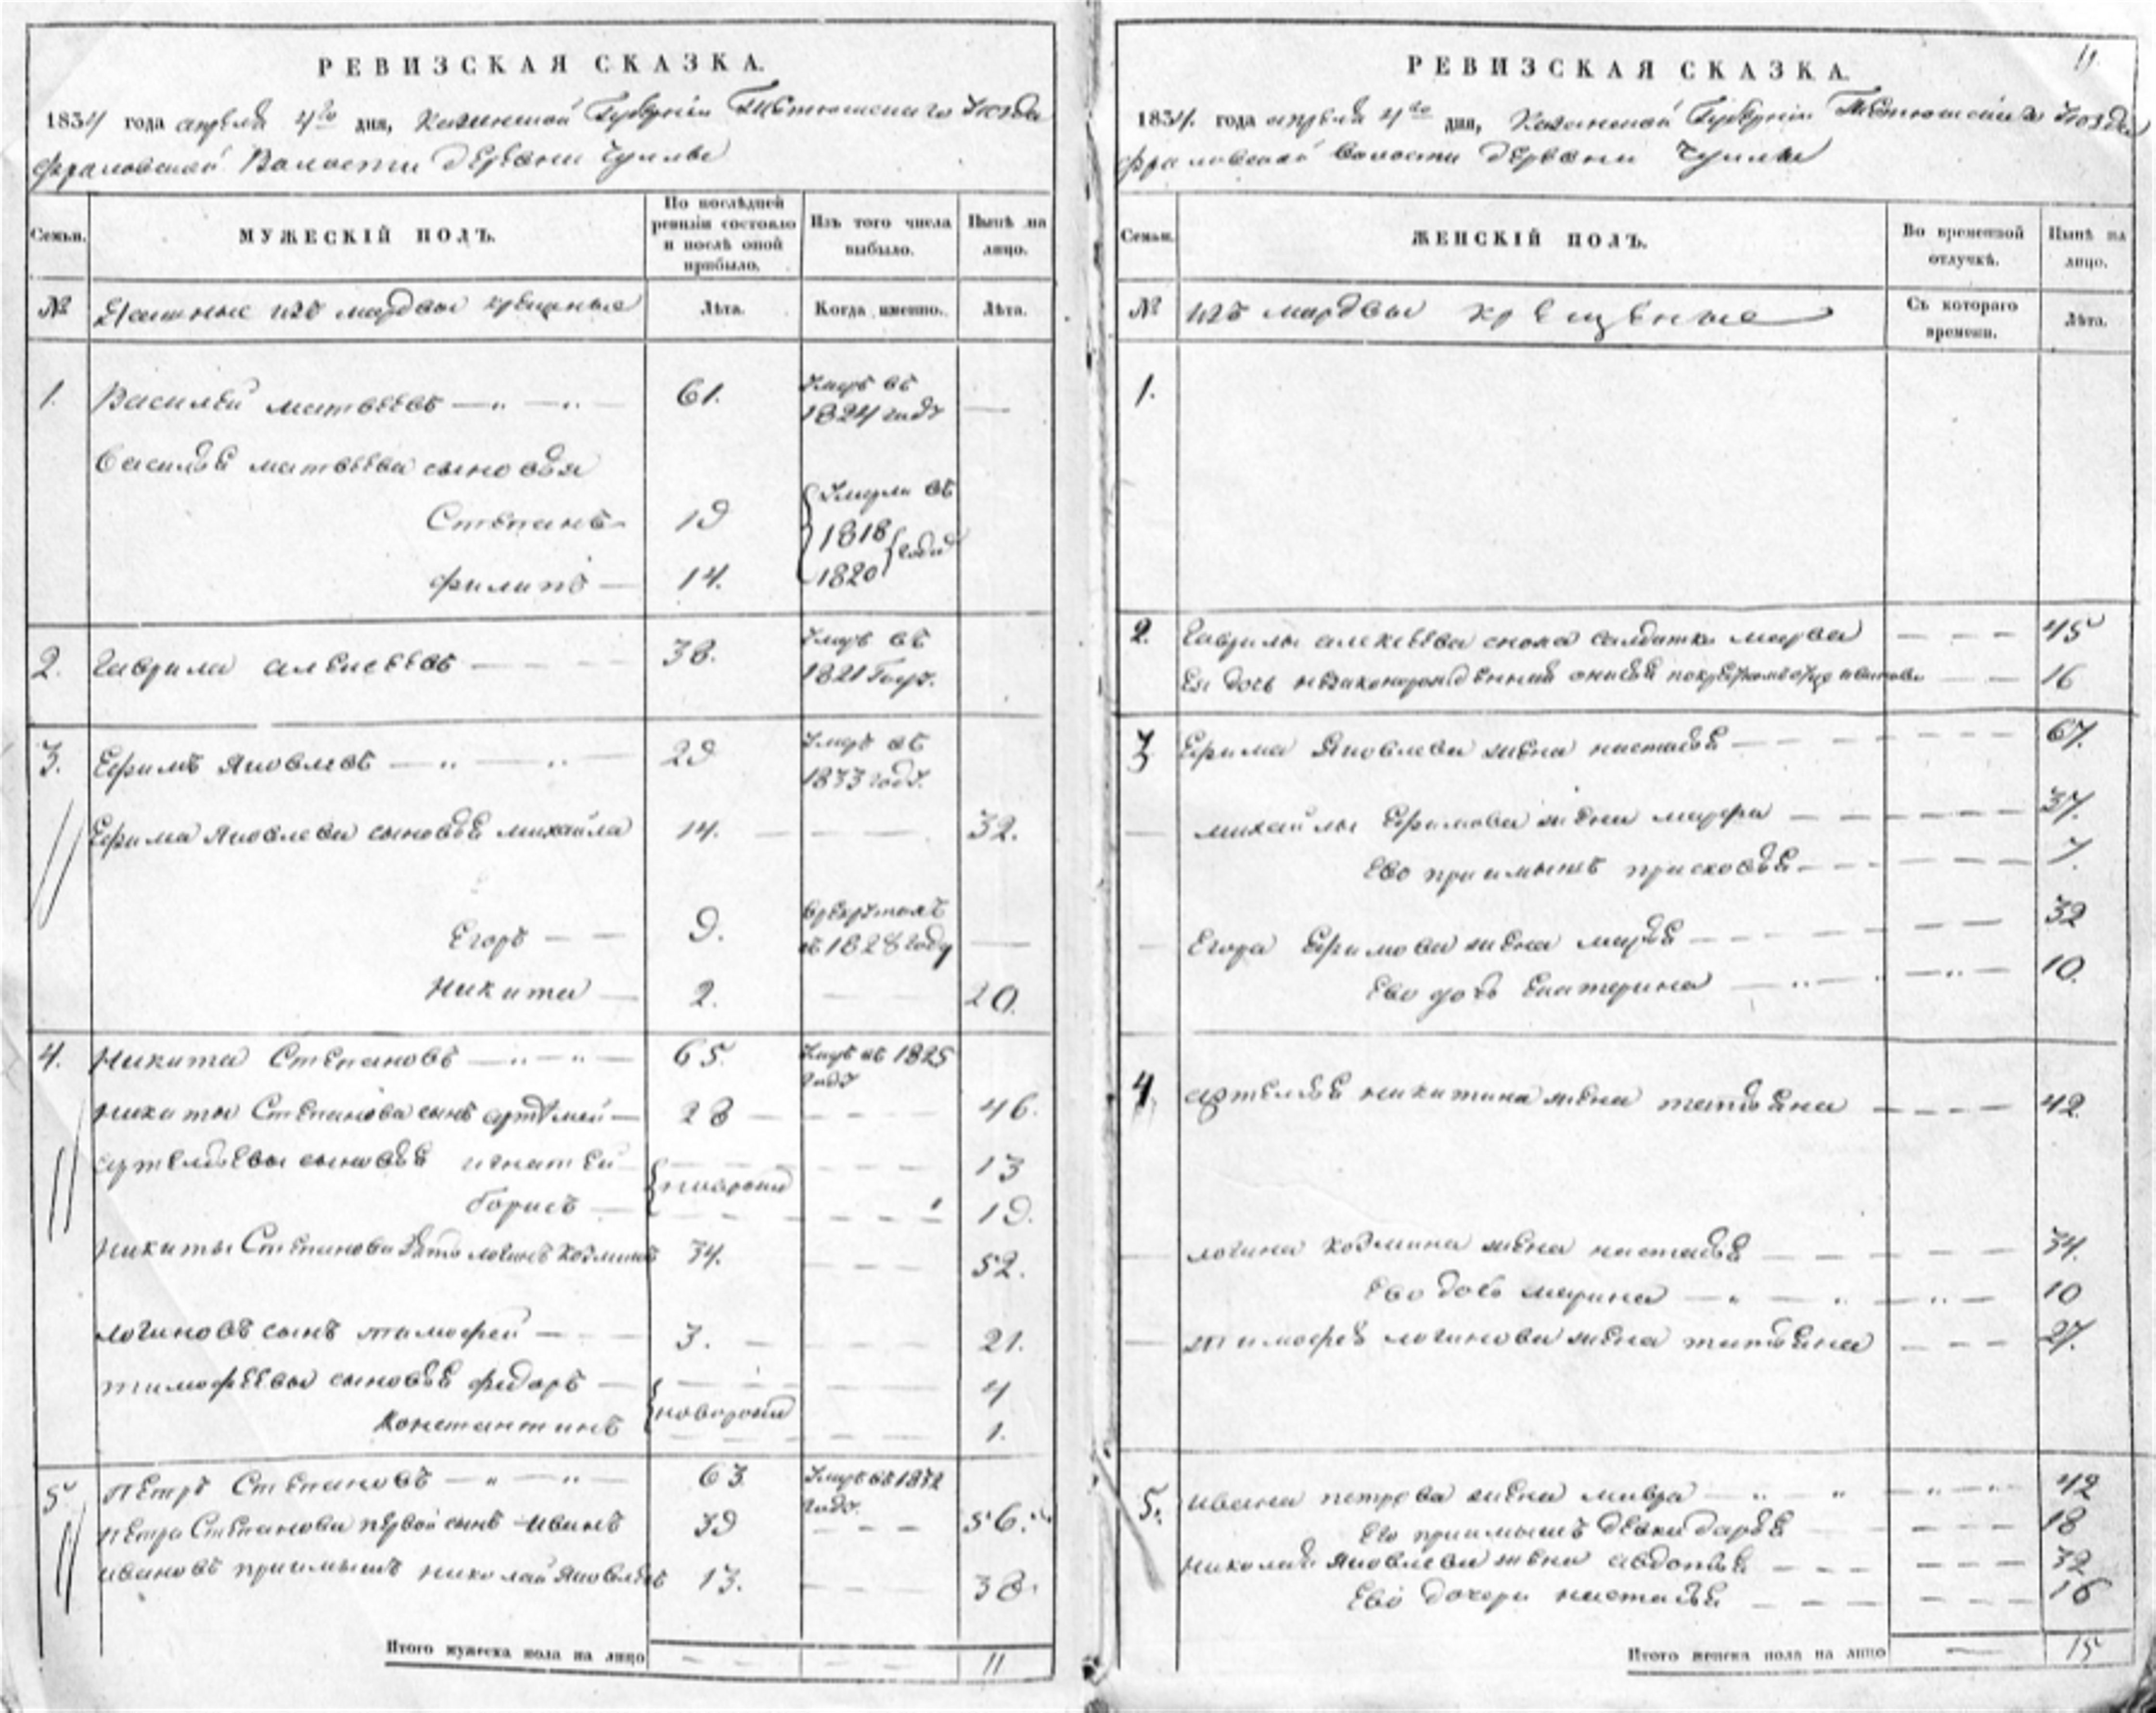 РЕВИЗСКАЯ СКАЗКА.
1834 года апреля 4го дня, Казанской Губернiи Тетюшскаго Уезда
Фроловской Волости деревни
Семьи.
МУЖЕСКIЙ ПОЛЪ.
По послѣдней ревизiи состояло и послѣ оной прибыло.
Изъ того числа выбыло.
Нынѣ на лицо.
№
изъ мордвы крещеные
Лѣта.
Когда именно.
Лѣта.
1. Василей Матвеевъ 61. Умеръ въ 1824 году —
Василья Матвеева сыновья
Степанъ 19 Умерли въ 1818
Филипъ 14. 1820 годах
2. Гаврила Алексеевъ 38. Умеръ въ 1821 году.
3. Ефимъ Яковлевъ 29 Умеръ въ 1833 году.
Ефима Яковлева сыновья Михайла 14. 32.
Егоръ 9. въ 1828 году —
Никита 2. 20.
4. Никита Степановъ 65. Умеръ въ 1825 году
Никиты Степанова сынъ Артемей 28 46.
Артемьевы сыновья Игнатей 13
новорож
Борисъ 19.
Никиты Степанова зять Логинъ Козминъ 34. 52.
Логиновъ сынъ Тимофей 3. 21.
Тимофеевы сыновья Федоръ 4
новорож
Константинъ 1.
5 Петръ Степановъ 63 Умеръ въ 1832 году.
Петра Степанова первой сынъ Иванъ 39 56.
Ивановъ приимышъ Николай Яковлевъ 13. 38.
Итого мужеска пола на лицо 11
11.
РЕВИЗСКАЯ СКАЗКА.
1834. года апреля 4го дня, Казанской Губернiи Тетюшскаго Уезда
Фроловской Волости деревни
Семьи.
ЖЕНСКIЙ ПОЛЪ.
Во временной отлучкѣ.
Нынѣ на лицо.
№
изъ мордвы крещеные
Съ котораго времени.
Лѣта.
1.
2. Гаврилы Алексеева сноха салдатка Марва 45
Ея дочь незаконорожденная 16
3 Ефима Яковлева жена Настасья 67.
Михайлы Ефимова жена Марфа 37.
Ево приимышъ Прасковья 7.
Егора Ефимова жена Марья 32
Ево дочь Екатерина 10.
4. Артемья Никитина жена Татьяна 42
Логина Козмина жена Настасья 34.
Ево дочь Марина 10
Тимофея Логинова жена Татьяна 27.
5. Ивана Петрова жена Мавра 42
Его приимышъ девка Дарья 18
Николая Яковлева жена Авдотья 32
Ево дочери Настасья 16
Итого женска пола на лицо — 15